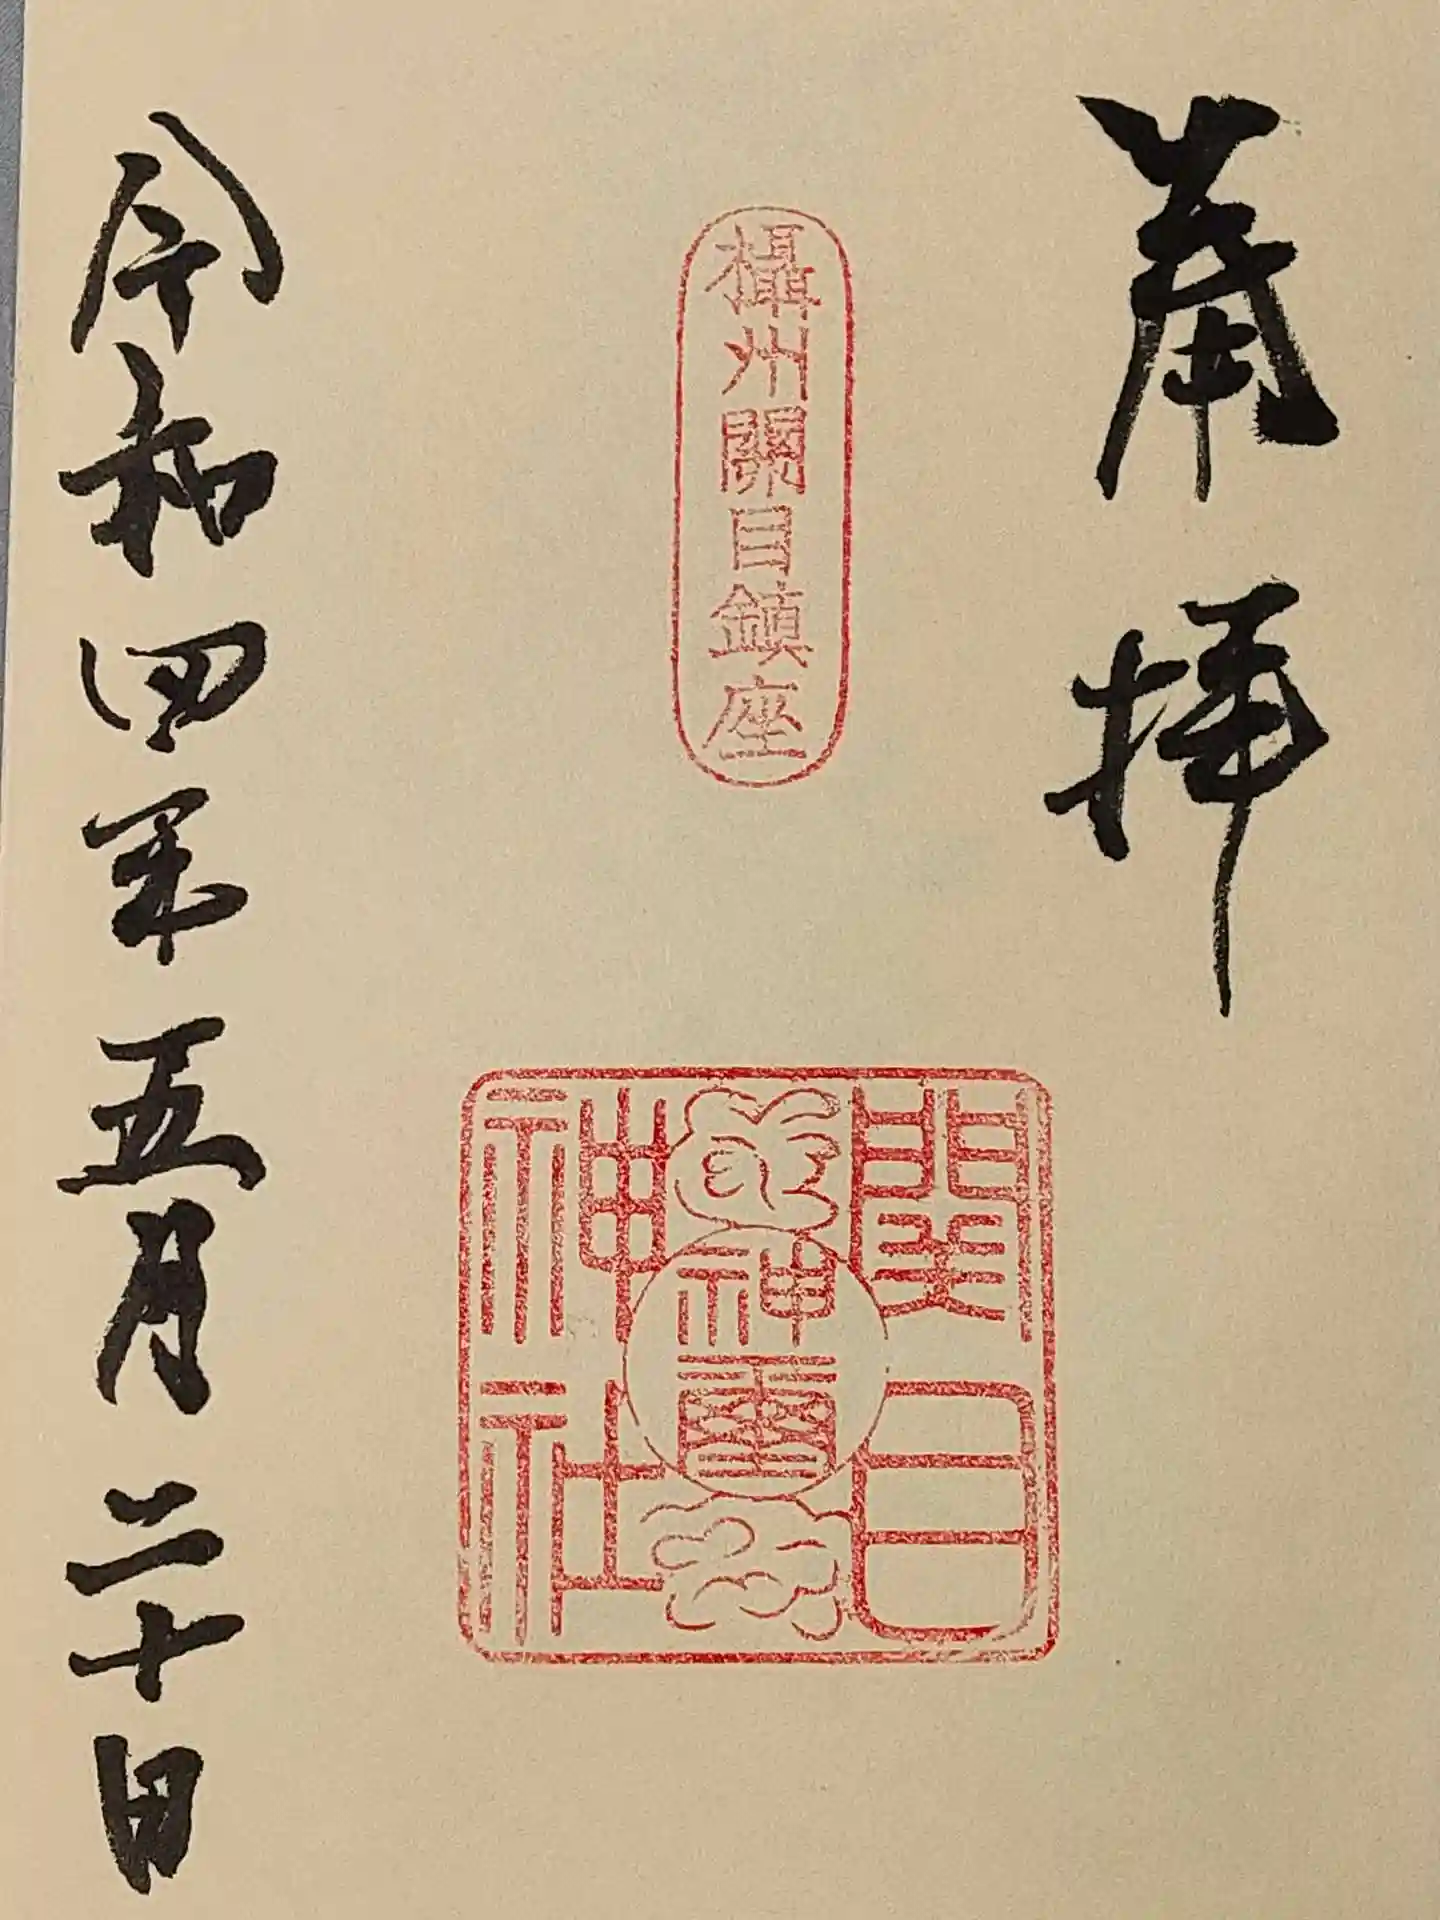 奉拝
攝州關目鎮座
関目
神社
神霊
令和四年五月二十日